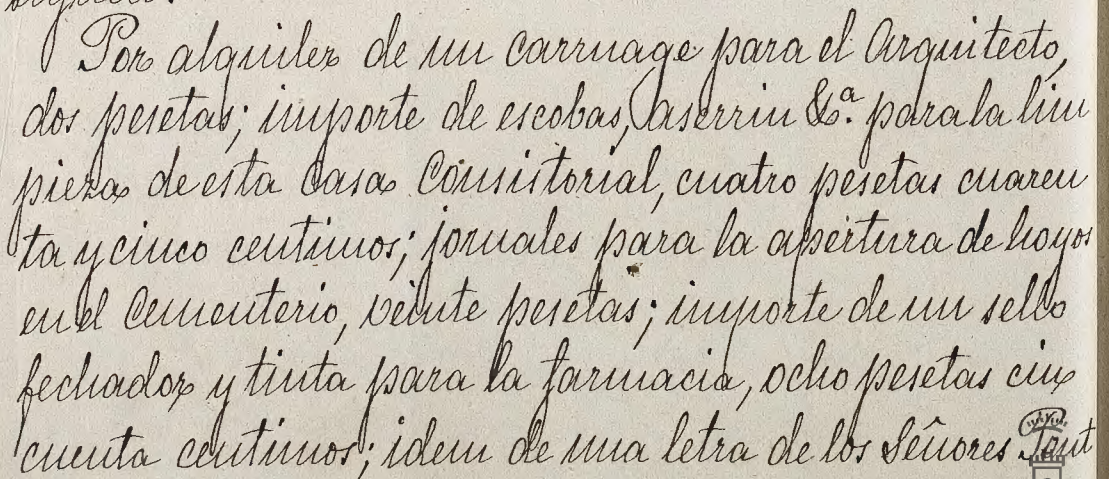 Por alquiler de un carruage para el Arquitecto,
dos pesetas; importe de escobas, aserrin &ª. para la lim
pieza de esta Casa Consistorial, cuatro pesetas cuaren
ta y cinco centimos; jornales para la apertura de hoyos
en el Cementerio, veinte pesetas; importe de un sello
fechador y tinta para la farmacia, ocho pesetas cin
cuenta centimos; idem de una letra de los Señores